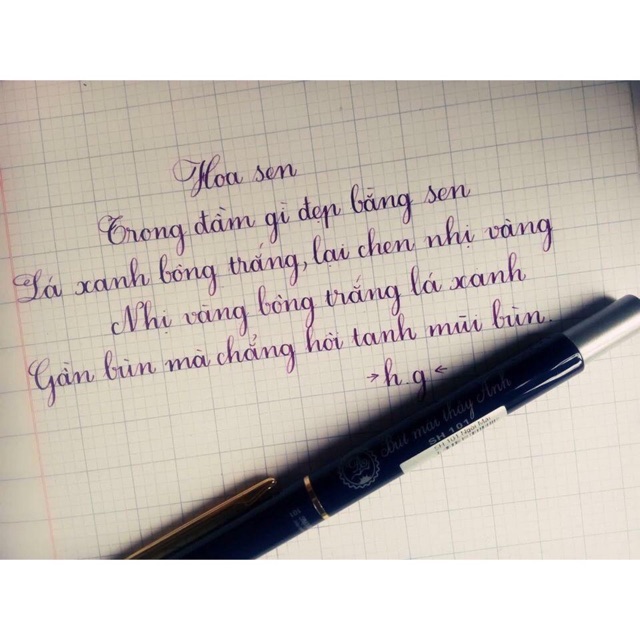 Hoa sen
Trong đầm gì đẹp bằng sen
Lá xanh bông trắng, lại chen nhị vàng
Nhị vàng bông trắng lá xanh
Gần bùn mà chẳng hôi tanh mùi bùn.
→h.g←
Bút mài thầy Ánh
SH 101